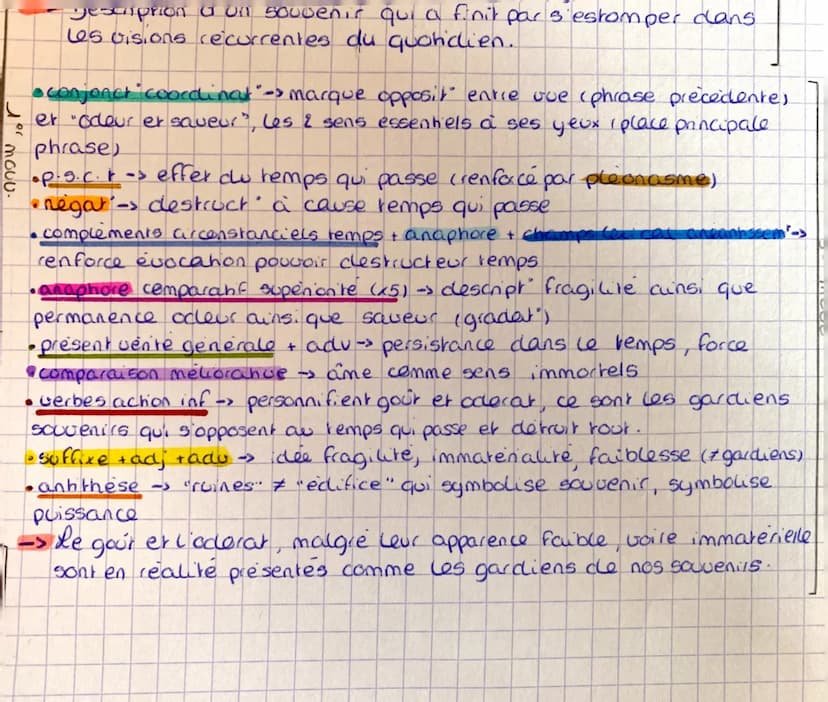 description d'un souvenir qui a finit par s'estomper dans
les visions récurrentes du quotidien.
• conjonct° coordinat° -> marque opposit° entre vue (phrase précédente)
et "odeur et saveur", les 2 sens essentiels à ses yeux (place principale
phrase)
• p.s.c.r -> effet du temps qui passe (renforcé par pléonasme)
• négat° -> destruct° à cause temps qui passe
• compléments circonstanciels temps + anaphore + champs lexical anéantissemt ->
renforce évocation pouvoir destructeur temps
• anaphore comparatif supériorité (x5) -> descript° fragilité ainsi que
permanence odeur ainsi que saveur (gradat°)
• présent vérité générale + adv -> persistance dans le temps, force
• comparaison méliorative -> âme comme sens immortels
• verbes action inf -> personnifient goût et odorat, ce sont les gardiens
souvenirs qui s'opposent au temps qui passe et détruit tout.
• suffixe + adj + adv -> idée fragilité, immatérialité, faiblesse (≠ gardiens)
• antithèse -> "ruines" ≠ "édifice" qui symbolise souvenir, symbolise
puissance
-> Le goût et l'odorat, malgré leur apparence faible, voire immatérielle
sont en réalité présentés comme les gardiens de nos souvenirs.
1er mouv.